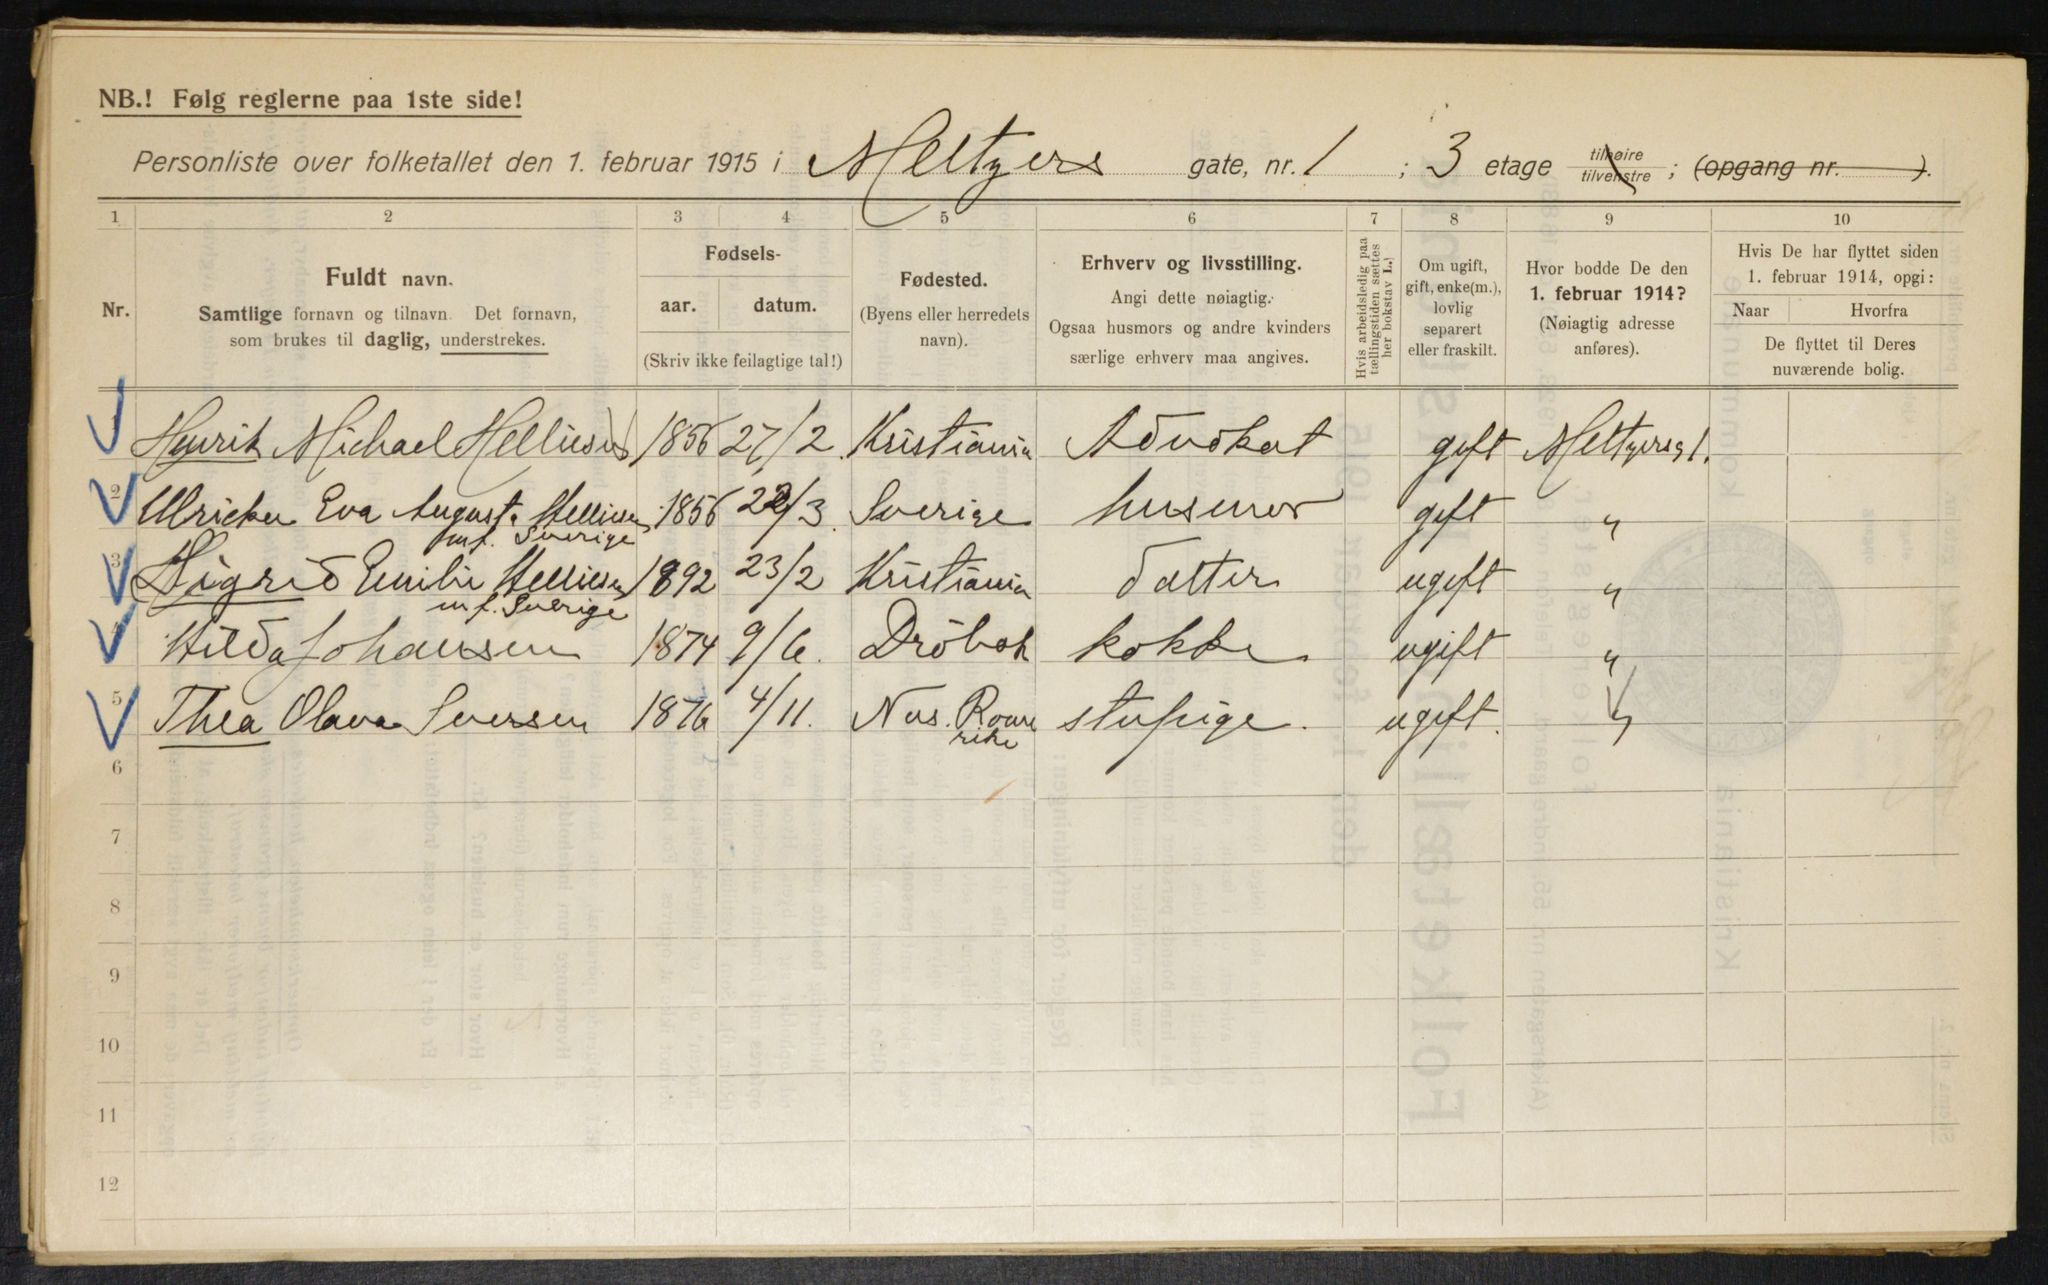 NB.! Følg reglerne paa 1ste side!
Personliste over folketallet den 1. februar 1915 i Meltzers gate, nr. 1 ; 3 etage tilhøire tilvenstre ; (opgang nr. ).
1 2 3 4 5 6 7 8 9 10
Nr.
Fuldt navn.
Samtlige fornavn og tilnavn. Det fornavn,
som brukes til daglig, understrekes.
Fødsels-
aar. datum.
(Skriv ikke feilagtige tal!)
Fødested.
(Byens eller herredets
navn).
Erhverv og livsstilling.
Angi dette nøiagtig.
Ogsaa husmors og andre kvinders
særlige erhverv maa angives.
Hvis arbeidsledig paa
tællingstiden sættes
her bokstav L.)
Om ugift,
gift, enke(m.),
lovlig
separert
eller fraskilt.
Hvor bodde De den
1. februar 1914?
(Nøiagtig adresse
anføres).
Hvis De har flyttet siden
1. februar 1914, opgi:
Naar Hvorfra
De flyttet til Deres
nuværende bolig.
1 Henrik Michael Helliesen 1856 27/2. Kristiania Advokat gift Meltzersg 1.
2 Ulricka Eva Augusta Helliesen 1856 22/3. Sverige husmor gift "
m f. Sverige
3 Sigrid Emilie Helliesen 1892 23/2 Kristiania datter ugift "
m f. Sverige
4 Hilda Johansen 1874 9/6. Dröbak kokke ugift "
5 Thea Olava Iversen 1876 4/11. Nes. Rome stupige. ugift. "
rike
6
7
8
9
10
11
12